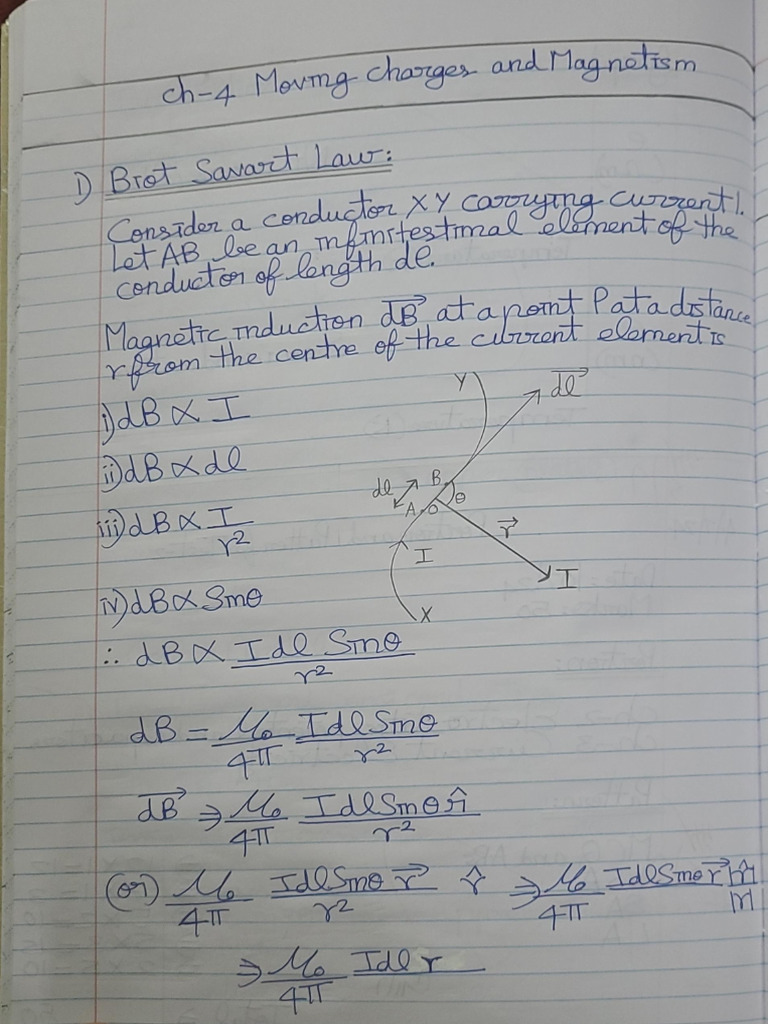 ch-4 Moving charges and Magnetism
1) Biot Savart Law:
Consider a conductor XY carrying current I.
Let AB be an infinitestimal element of the
conductor of length dl.
Magnetic induction dB⃗ at a point P at a distance
r from the centre of the current element is
i) dB ∝ I
ii) dB ∝ dl
iii) dB ∝ I/r²
iv) dB ∝ Sinθ
Y dl⃗
dl B θ
A O r⃗
I I
X
∴ dB ∝ Idl Sinθ/r²
dB = μ₀/4π IdlSinθ/r²
dB⃗ ⇒ μ₀/4π IdlSinθ n̂/r²
(or) μ₀/4π IdlSinθ r⃗/r² r̂ ⇒ μ₀/4π IdlSinθ r⃗
⇒ μ₀/4π Idl r